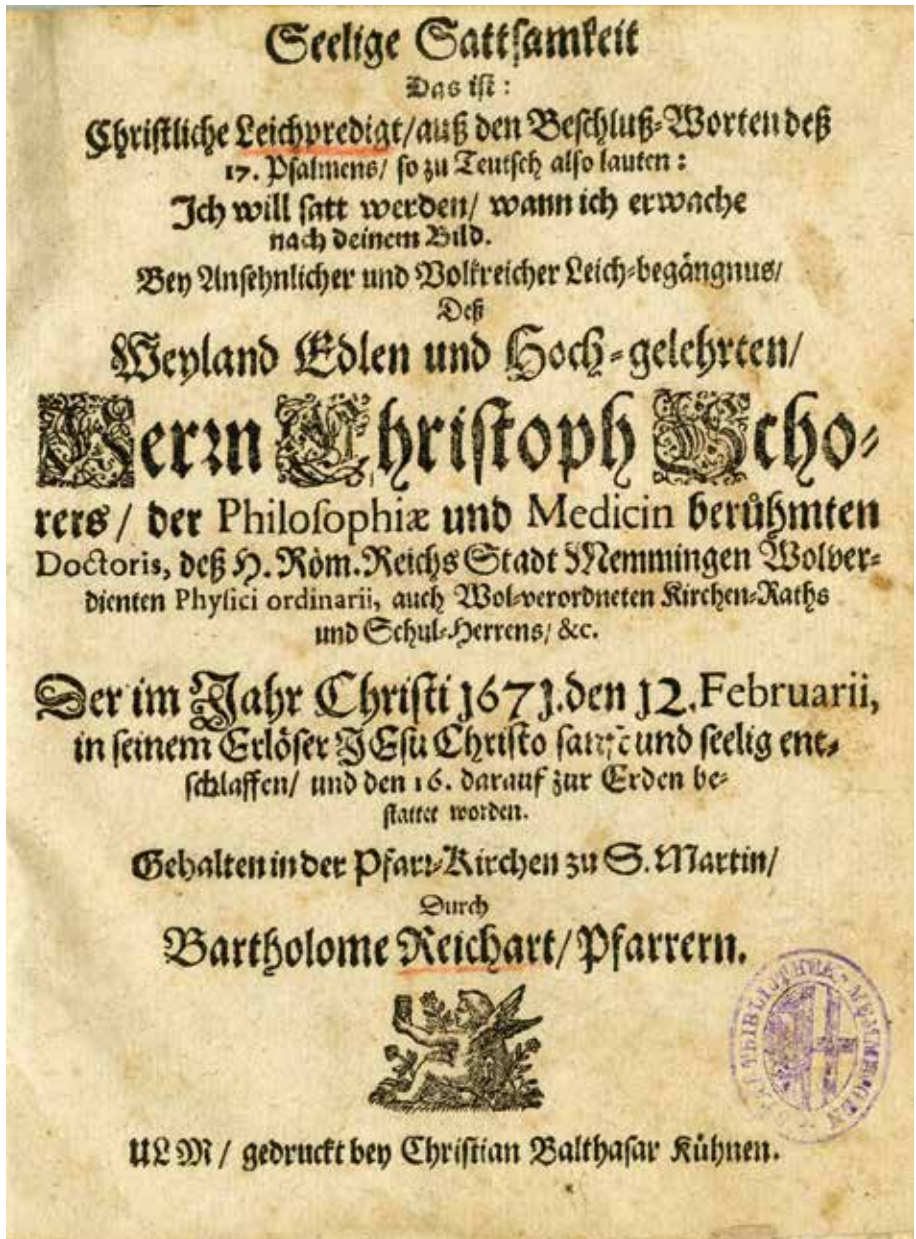 Seelige Sattsamkeit
Das ist:
Christliche Leichpredigt/auß den Beschluß-Worten deß
17. Psalmens/ so zu Teutsch also lauten:
Ich will satt werden/ wann ich erwache
nach deinem Bild.
Bey Ansehnlicher und Volkreicher Leich-begängnus/
Deß
Weyland Edlen und Hoch-gelehrten/
Herrn Christoph Scho-
rers/ der Philosophiæ und Medicin berühmten
Doctoris, deß H. Röm. Reichs Stadt Memmingen Wolver-
dienten Physici ordinarii, auch Wol-verordneten Kirchen-Raths
und Schul-Herrens/ &c.
Der im Jahr Christi 1671. den 12. Februarii,
in seinem Erlöser JEsu Christo sanft und seelig ent-
schlaffen/ und den 16. darauf zur Erden be-
stattet worden.
Gehalten in der Pfarr-Kirchen zu S. Martin/
Durch
Bartholome Reichart/Pfarrern.
STADTBIBLIOTHEK - MEMMINGEN
ULM/ gedruckt bey Christian Balthasar Kühnen.